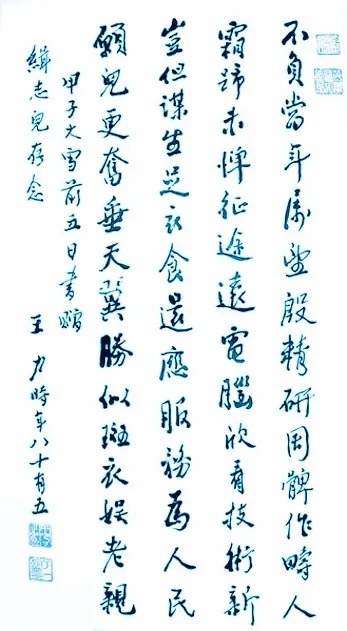 不負當年屬望殷精研周髀作疇人
霜蹄未憚征途遠電腦欣看技術新
豈但謀生足衣食還應服務為人民
願兒更奮垂天翼勝似斑衣娛老親
甲子大雪前五日書贈
緝志兒存念 王力時年八十有五